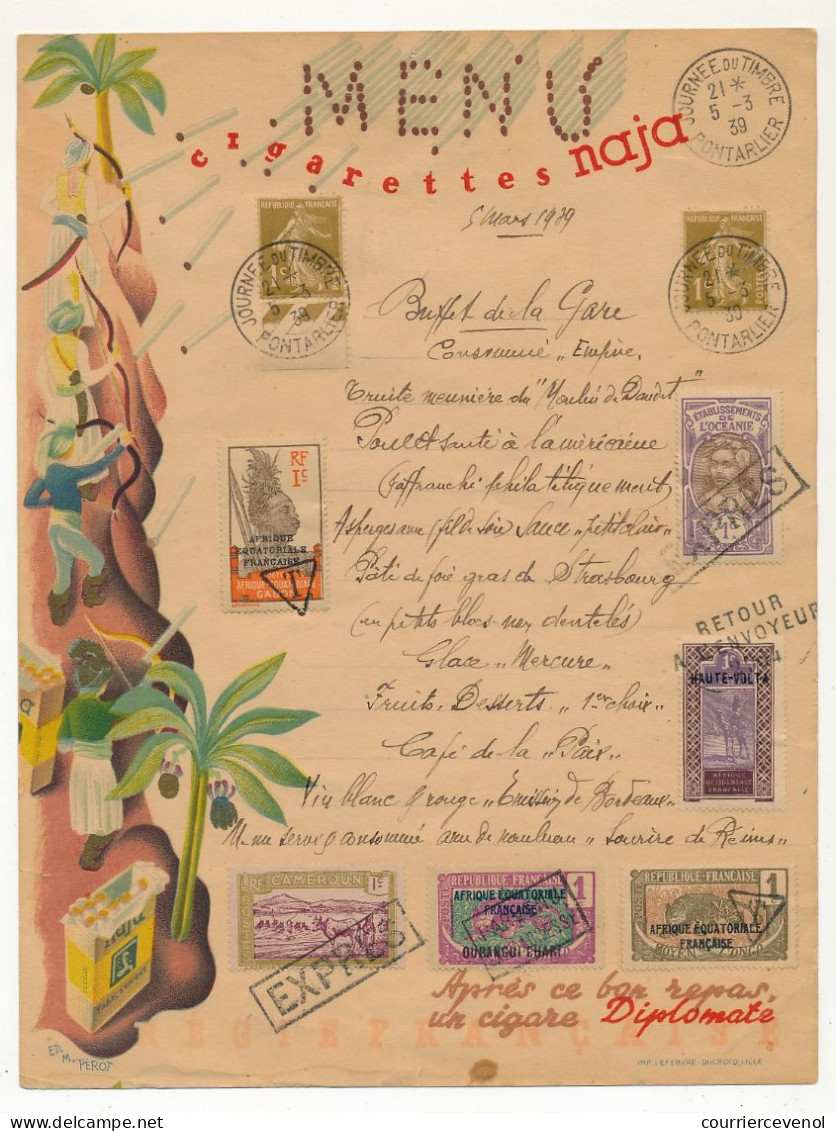 MENU
cigarettes naja
JOURNEE DU TIMBRE
21 *
5 -3
39
PONTARLIER
5 Mars 1939
REPUBLIQUE FRANÇAISE
1c
JOURNEE DU TIMBRE
21 *
5 -3
39
PONTARLIER
REPUBLIQUE FRANÇAISE
1c
POSTES
JOURNEE DU TIMBRE
21 *
5 -3
39
PONTARLIER
Buffet de la Gare
Consommé „ Empire„
Truite meunière du "Moulin de Daudet"
Poulet sauté à l'américaine
(affranchi philatéliquement)
Asperges avec (fil de soie) Sauce
Pâté de foie gras de Strasbourg
(en petits blocs non dentelés)
Glace „Mercure„
Fruits, Desserts „ 1er choix„
Café de la „Paix„
Vin blanc & rouge „Emission de Bordeaux„
Menu servi & consommé avec de „Sourire de Reims„
ETABLISSEMENTS
DE
L'OCEANIE
RF
1c
AFRIQUE
EQUATORIALE
FRANÇAISE
AFRIQUE EQUATORIALE
GABON
T
RETOUR
A L'ENVOYEUR
HAUTE-VOLTA
AFRIQUE
OCCIDENTALE
FRANÇAISE
RF
CAMEROUN
1c
EXPRES
REPUBLIQUE-FRANÇAISE
POSTES
AFRIQUE EQUATORIALE
FRANÇAISE
1
OUBANGUI-CHARI
REPUBLIQUE-FRANÇAISE
POSTES
1
AFRIQUE EQUATORIALE
FRANÇAISE
MOYEN CONGO
T
naja
Après ce bon repas,
un cigare Diplomate
REGIE FRANÇAISE
ED. M. PEROT
IMP. LEFEBVRE-DUCROCQ, LILLE
www.couriercevenol.com